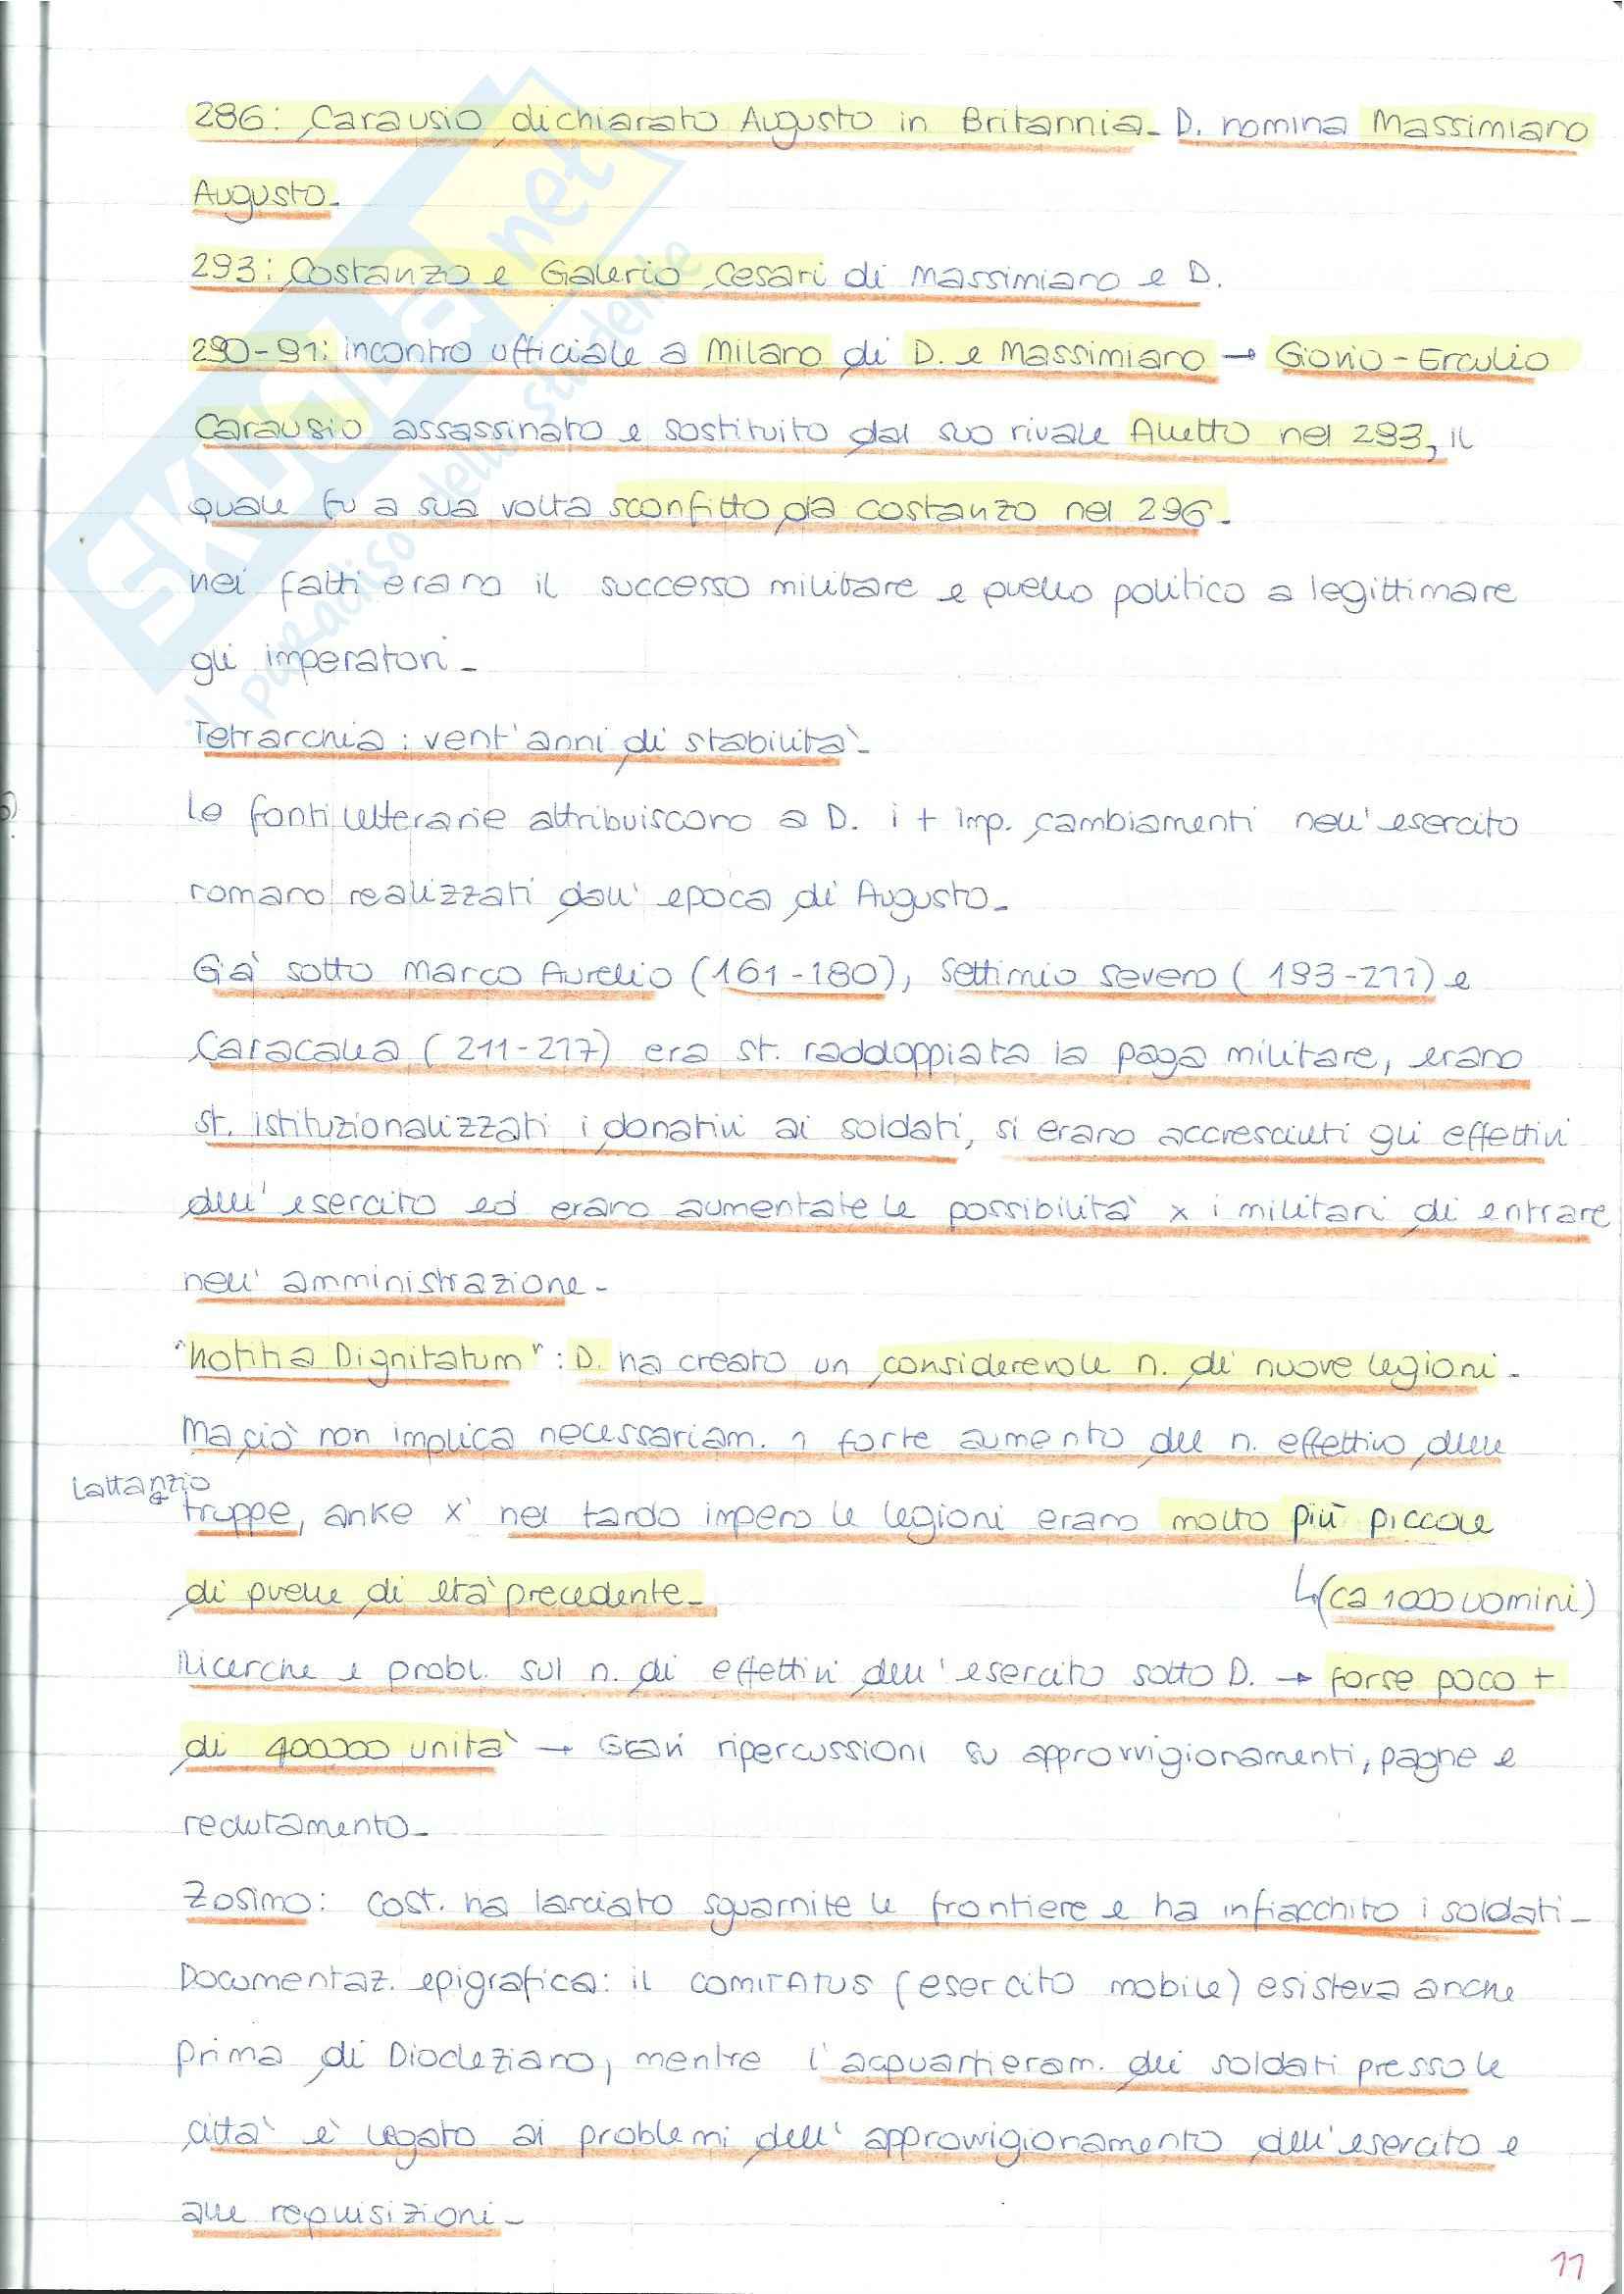 286: Carausio dichiarato Augusto in Britannia. D. nomina Massimiano
Augusto.
293: Costanzo e Galerio Cesari di Massimiano e D.
290-91: incontro ufficiale a Milano di D. e Massimiano → Giovio-Erculio
Carausio assassinato e sostituito dal suo rivale Alletto nel 293, il
quale fu a sua volta sconfitto da Costanzo nel 296.
Nei fatti erano il successo militare e quello politico a legittimare
gli imperatori.
Tetrarchia: vent'anni di stabilità.
Le fonti letterarie attribuiscono a D. i + imp. cambiamenti nell'esercito
romano realizzati dall'epoca di Augusto.
Già sotto Marco Aurelio (161-180), Settimio Severo (193-211) e
Caracalla (211-217) era st. raddoppiata la paga militare, erano
st. istituzionalizzati i donativi ai soldati, si erano accresciuti gli effettivi
dell'esercito ed erano aumentate le possibilità x i militari di entrare
nell'amministrazione.
"Notitia Dignitatum": D. ha creato un considerevole n. di nuove legioni.
Ma ciò non implica necessariam. 1 forte aumento del n. effettivo delle
Lattanzio
truppe, anke x' nel tardo impero le legioni erano molto più piccole
di quelle di età precedente.
↳(ca 1000 uomini)
Ricerche e probl. sul n. di effettivi dell'esercito sotto D. → forse poco +
di 400000 unità → Gravi ripercussioni su approvvigionamenti, paghe e
reclutamento.
Zosimo: Cost. ha lasciato sguarnite le frontiere e ha infiacchito i soldati.
Documentaz. epigrafica: il COMITATUS (esercito mobile) esisteva anche
prima di Diocleziano, mentre l'acquartieram. dei soldati presso le
città è legato ai problemi dell'approvvigionamento dell'esercito e
alle requisizioni.
11
SKUOLA.net
il paradiso dello studente